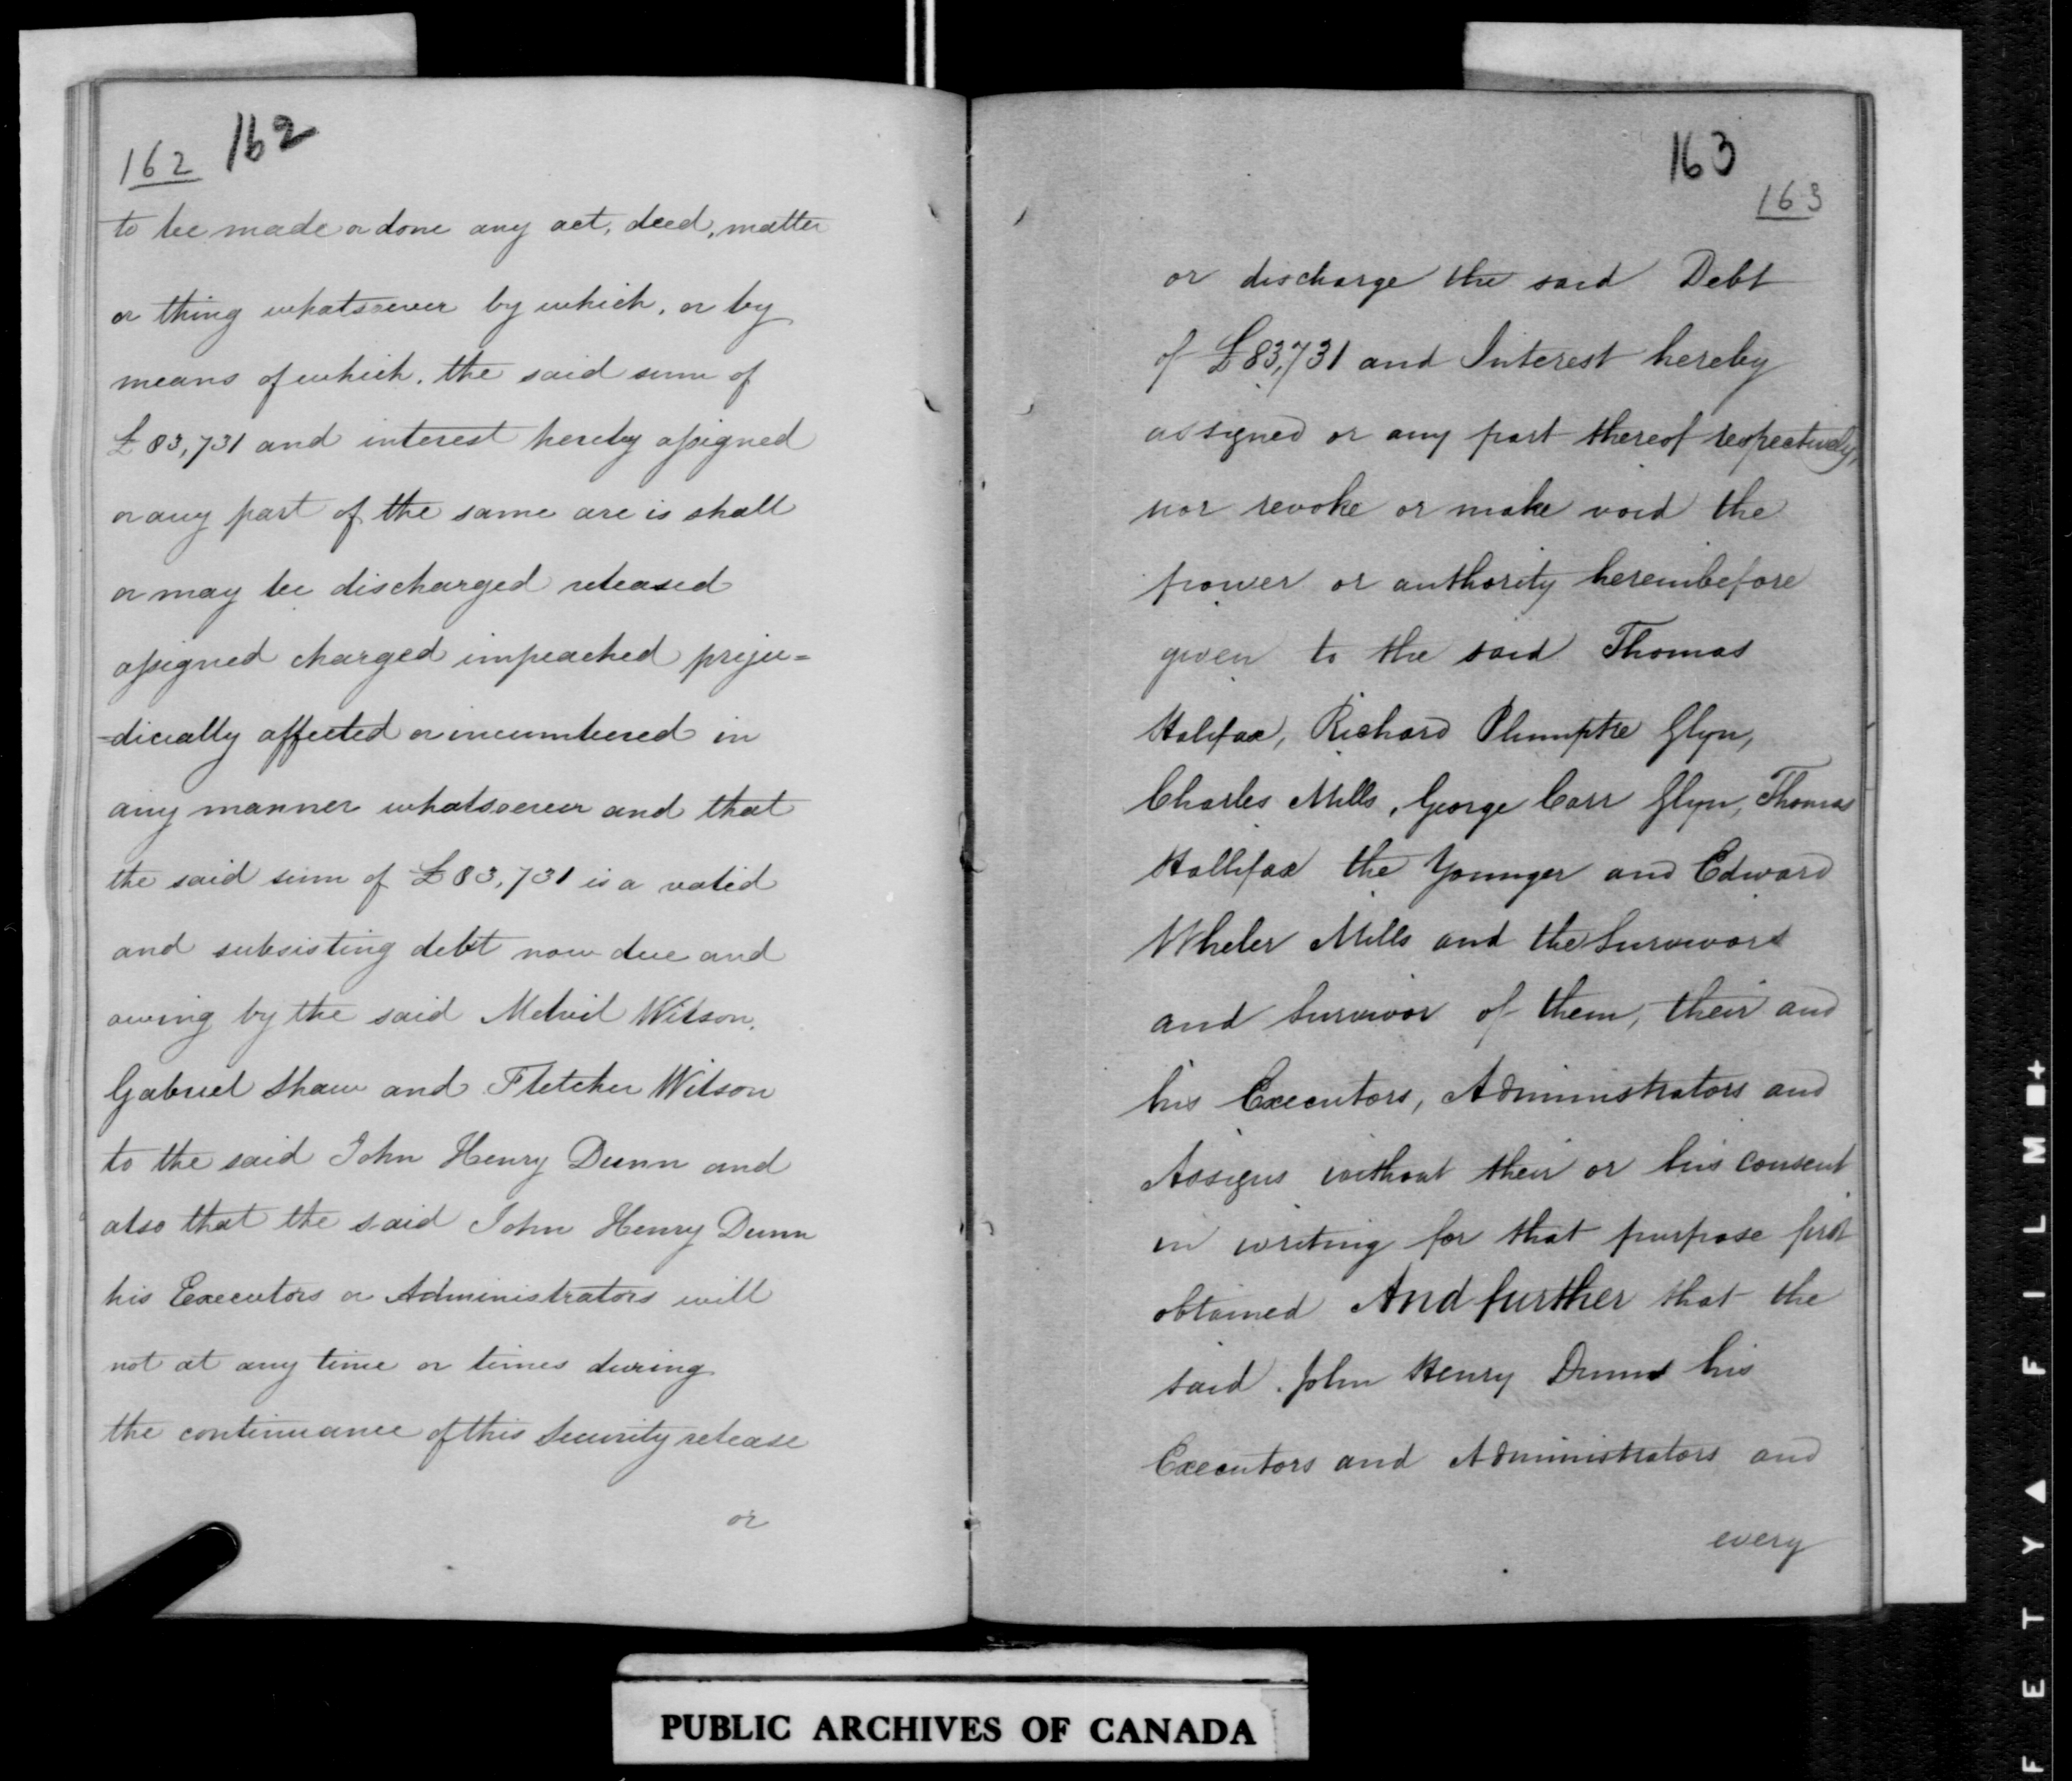 162 162
to be made or done any act, deed, matter
or thing whatsoever by which, or by
means of which, the said sum of
£83,731 and interest hereby assigned
or any part of the same are is shall
or may be discharged released
assigned charged impeached preju=
=dicially affected or incumbered in
any manner whatsoever and that
the said sum of £83,731 is a valid
and subsisting debt now due and
owing by the said Melvil Wilson,
Gabriel Shaw and Fletcher Wilson
to the said John Henry Dunn and
also that the said John Henry Dunn
his Executors or Administrators will
not at any time or times during
the continuance of this Security release
or
163
163
or discharge the said Debt
of £83,731 and Interest hereby
assigned or any part thereof respectively,
nor revoke or make void the
power or authority hereinbefore
given to the said Thomas
Halifax, Richard Plumptre Glyn,
Charles Mills, George Carr Glyn, Thomas
Hallifax the Younger and Edward
Wheler Mills and the Survivors
and Survivor of them, their and
his Executors, Administrators and
Assigns without their or his consent
in writing for that purpose first
obtained And further that the
said John Henry Dunn his
Executors and Administrators and
every
PUBLIC ARCHIVES OF CANADA
F E T Y ▲ F I L M ■ +